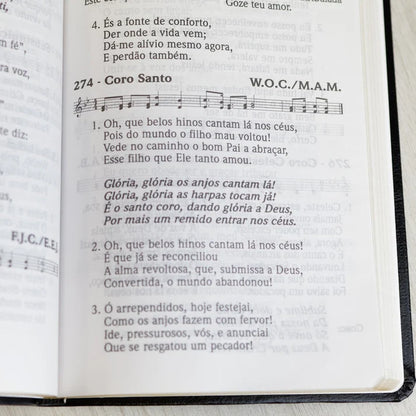 Goze teu amor.
4. És a fonte de conforto,
Der onde a vida vem;
Dá-me alívio mesmo agora,
E perdão também.
274 - Coro Santo
W.O.C./M.A.M.
1. Oh, que belos hinos cantam lá nos céus,
Pois do mundo o filho mau voltou!
Vede no caminho o bom Pai a abraçar,
Esse filho que Ele tanto amou.
Glória, glória os anjos cantam lá!
Glória, glória as harpas tocam já!
É o santo coro, dando glória a Deus,
Por mais um remido entrar nos céus.
2. Oh, que belos hinos cantam lá nos céus!
É que já se reconciliou
A alma revoltosa, que, submissa a Deus,
Convertida, o mundo abandonou!
3. Ó arrependidos, hoje festejai,
Como os anjos fazem com fervor!
Ide, pressurosos, vós, e anunciai
Que se resgatou um pecador!
fé",
ra voz,
te diz:
F.J.C./E.E.